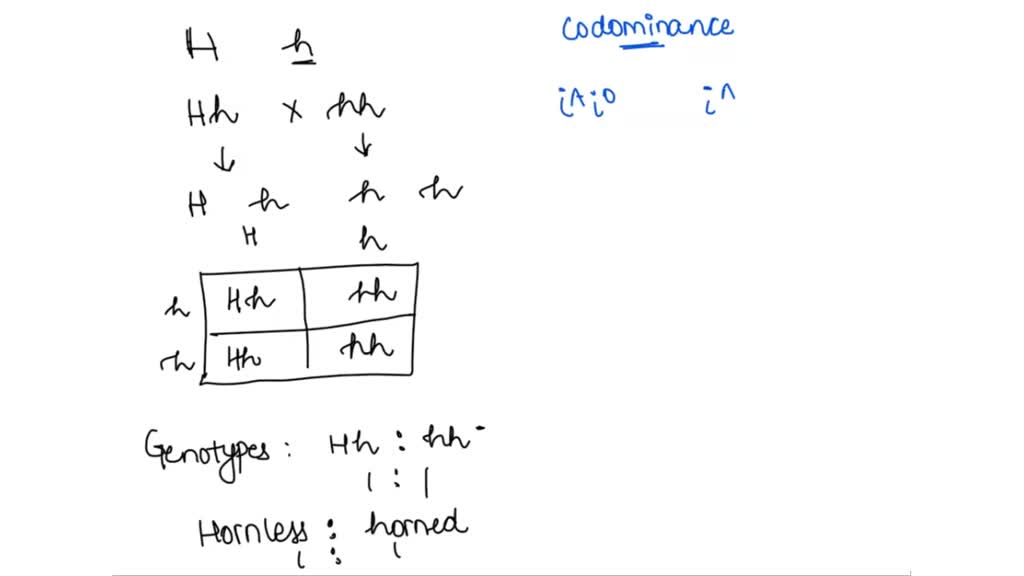 H h
Hh x hh
↓ ↓
H h h h
H h
h Hh hh
h Hh hh
Genotypes : Hh : hh
1 : 1
Hornless : horned
1 : 1
codominance
iᴬiᴼ iᴬ